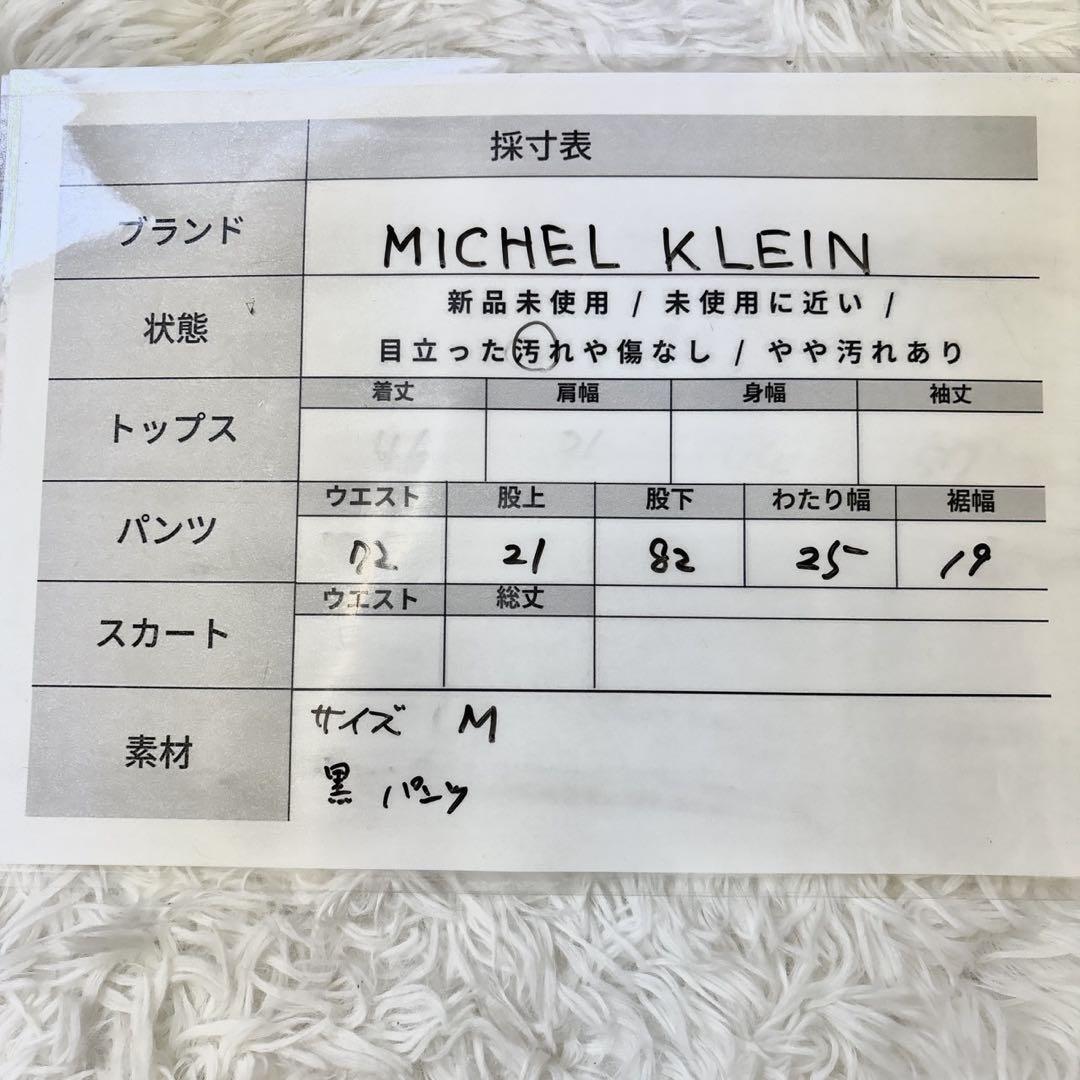 採寸表
ブランド
MICHEL KLEIN
状態
新品未使用 / 未使用に近い /
目立った汚れや傷なし / やや汚れあり
トップス
着丈 肩幅 身幅 袖丈
パンツ
ウエスト 股上 股下 わたり幅 裾幅
72 21 82 25 19
スカート
ウエスト 総丈
素材
サイズ M
黒 パンツ